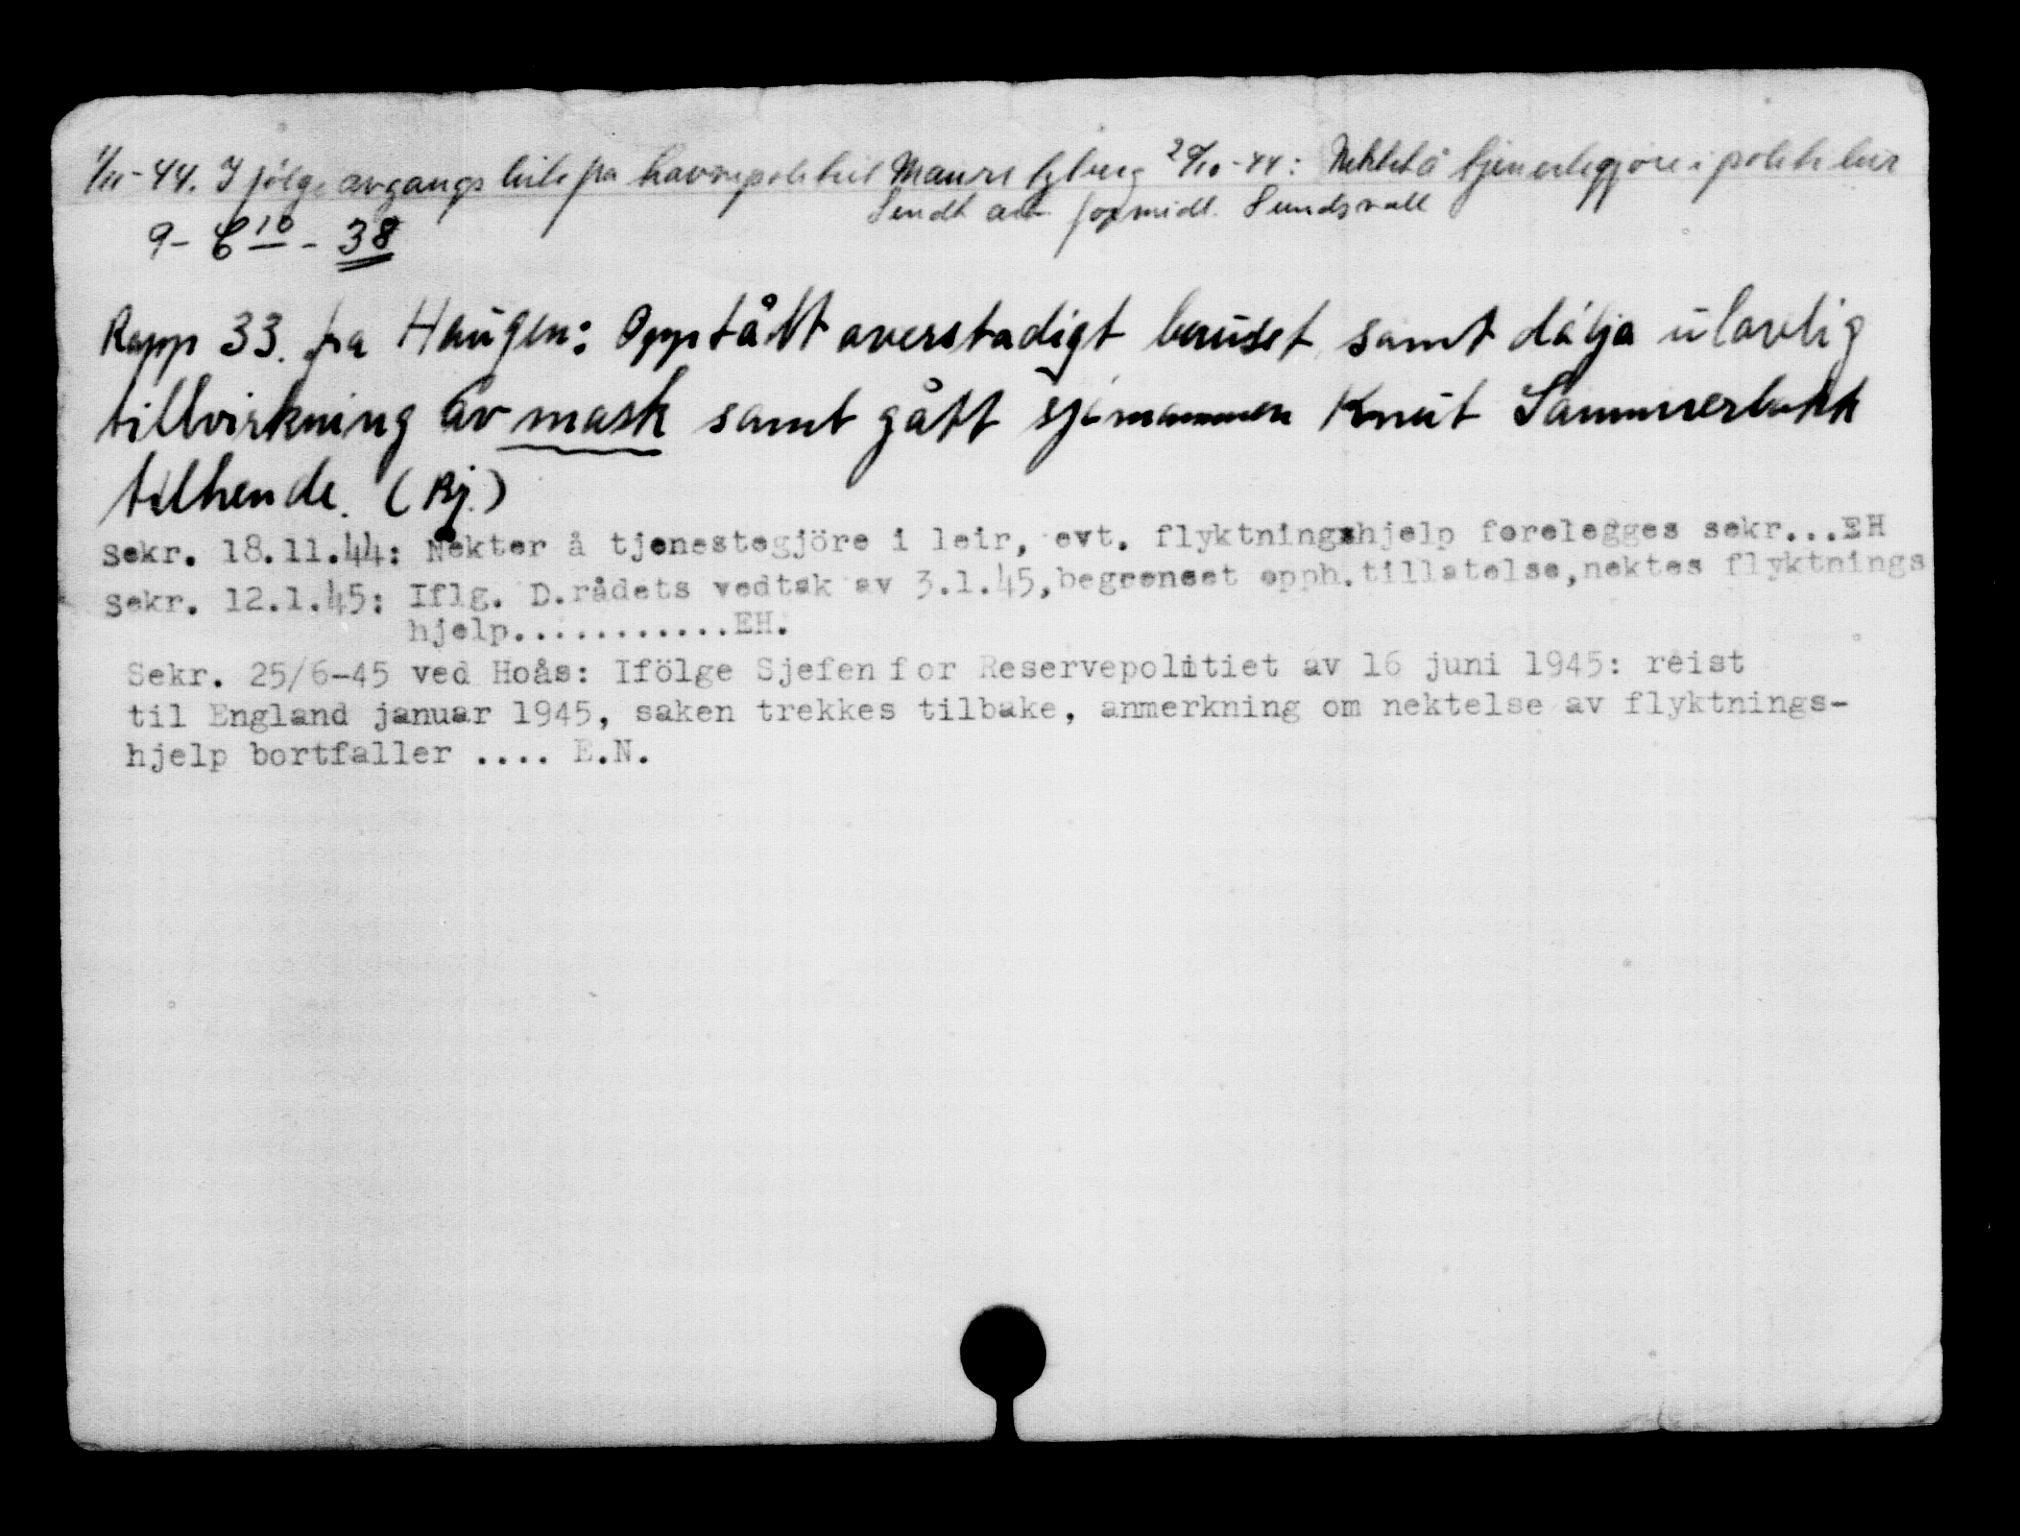 1/11-44. I følge avgangsliste fra Mauritzberg 29/10-44: Nektet å tjenestegjøre i politileir
Sendt arb. formidl. Sundsvall
9- 6 10 - 38
Rapp 33. fra Haugen: Oppstått averstadigt beruset samt dålja ulovlig
tillvirkning av mask samt gått sjömannen Knut Sammerbakk
tilhende. (Rj.)
Sekr. 18.11.44: Nekter å tjenestegjöre i leir, evt. flyktningshjelp forelegges sekr...EH
Sekr. 12.1.45: Iflg. D.rådets vedtak av 3.1.45, begrenset opph.tillatelse, nektes flyktnings
hjelp...........EH.
Sekr. 25/6-45 ved Hoås: Ifölge Sjefen for Reservepolitiet av 16 juni 1945: reist
til England januar 1945, saken trekkes tilbake, anmerkning om nektelse av flyktnings-
hjelp bortfaller .... E.N.